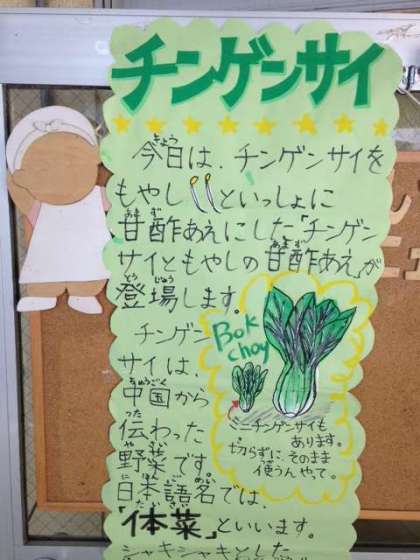 チンゲンサイ
今日は、チンゲンサイを
もやしといっしょに
甘酢あえにした「チンゲン
サイともやしの甘酢あえ」が
登場します。
チンゲン
サイは、
中国から
伝わった
野菜です。
日本語名では、
「体菜」といいます。
シャキシャキとした
Bok
choy
ミニチンゲンサイも
あります。
切らずに、そのまま
使うんやって。